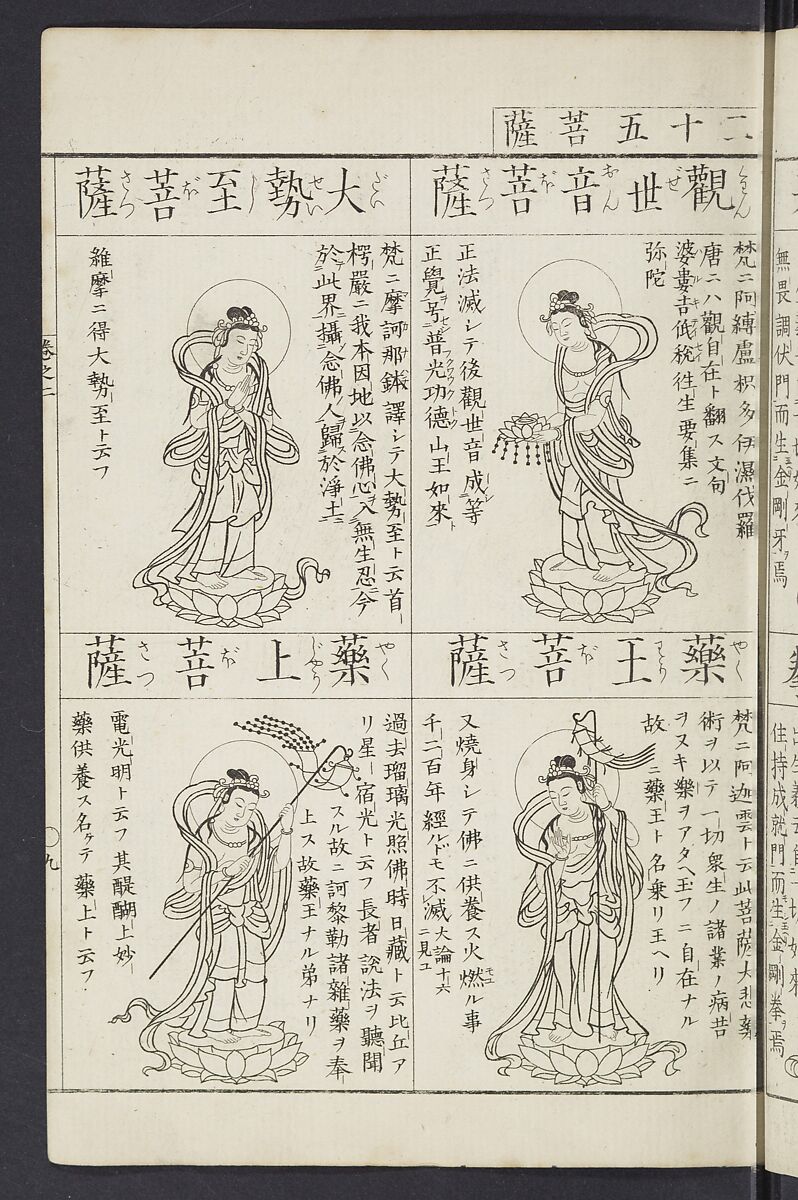 二十五菩薩
觀世音菩薩
くわんぜおんぼさつ
梵ニ阿縛盧枳多伊濕伐羅
唐ニハ觀自在ト翻ス文句
婆婁吉低稅往生要集ニ
弥陀
正法滅シテ後觀世音成等
正覺号普光功德山王如來
大勢至菩薩
だいせいしぼさつ
梵ニ摩訶那鉢譯シテ大勢至ト云首
楞嚴ニ我本因地以念佛心入無生忍今
於此界攝念佛人歸於淨土
維摩ニ得大勢至ト云フ
藥王菩薩
やくわうぼさつ
梵ニ阿迦雲ト云此菩薩大悲藥
術ヲ以テ一切衆生ノ諸業ノ病苦
ヲヌキ樂ヲアタヘ玉フニ自在ナル
故ニ藥王ト名乗リ王ヘリ
又燒身シテ佛ニ供養ス火燃ル事
千二百年經ルドモ不滅大論十六ニ見ユ
藥上菩薩
やくじやうぼさつ
過去瑠璃光照佛時日藏ト云比丘ア
リ星宿光ト云フ長者說法ヲ聽聞
スル故ニ訶黎勒諸雜藥ヲ奉
上ス故藥王ナル弟ナリ
電光明ト云フ其醍醐上妙
藥供養ス名ケテ藥上ト云フ
卷之二
〇九
無畏調伏門而生金剛牙焉
住持成就門而生金剛拳焉